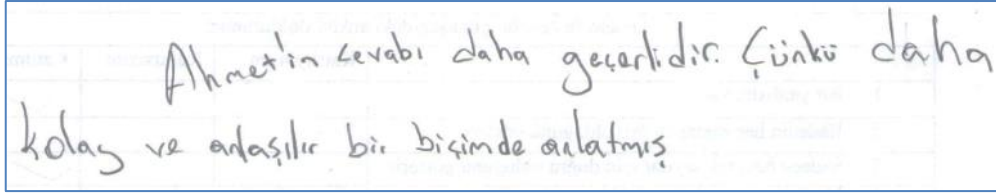 Ahmet'in cevabı daha geçerlidir. Çünkü daha
kolay ve anlaşılır bir biçimde anlatmış